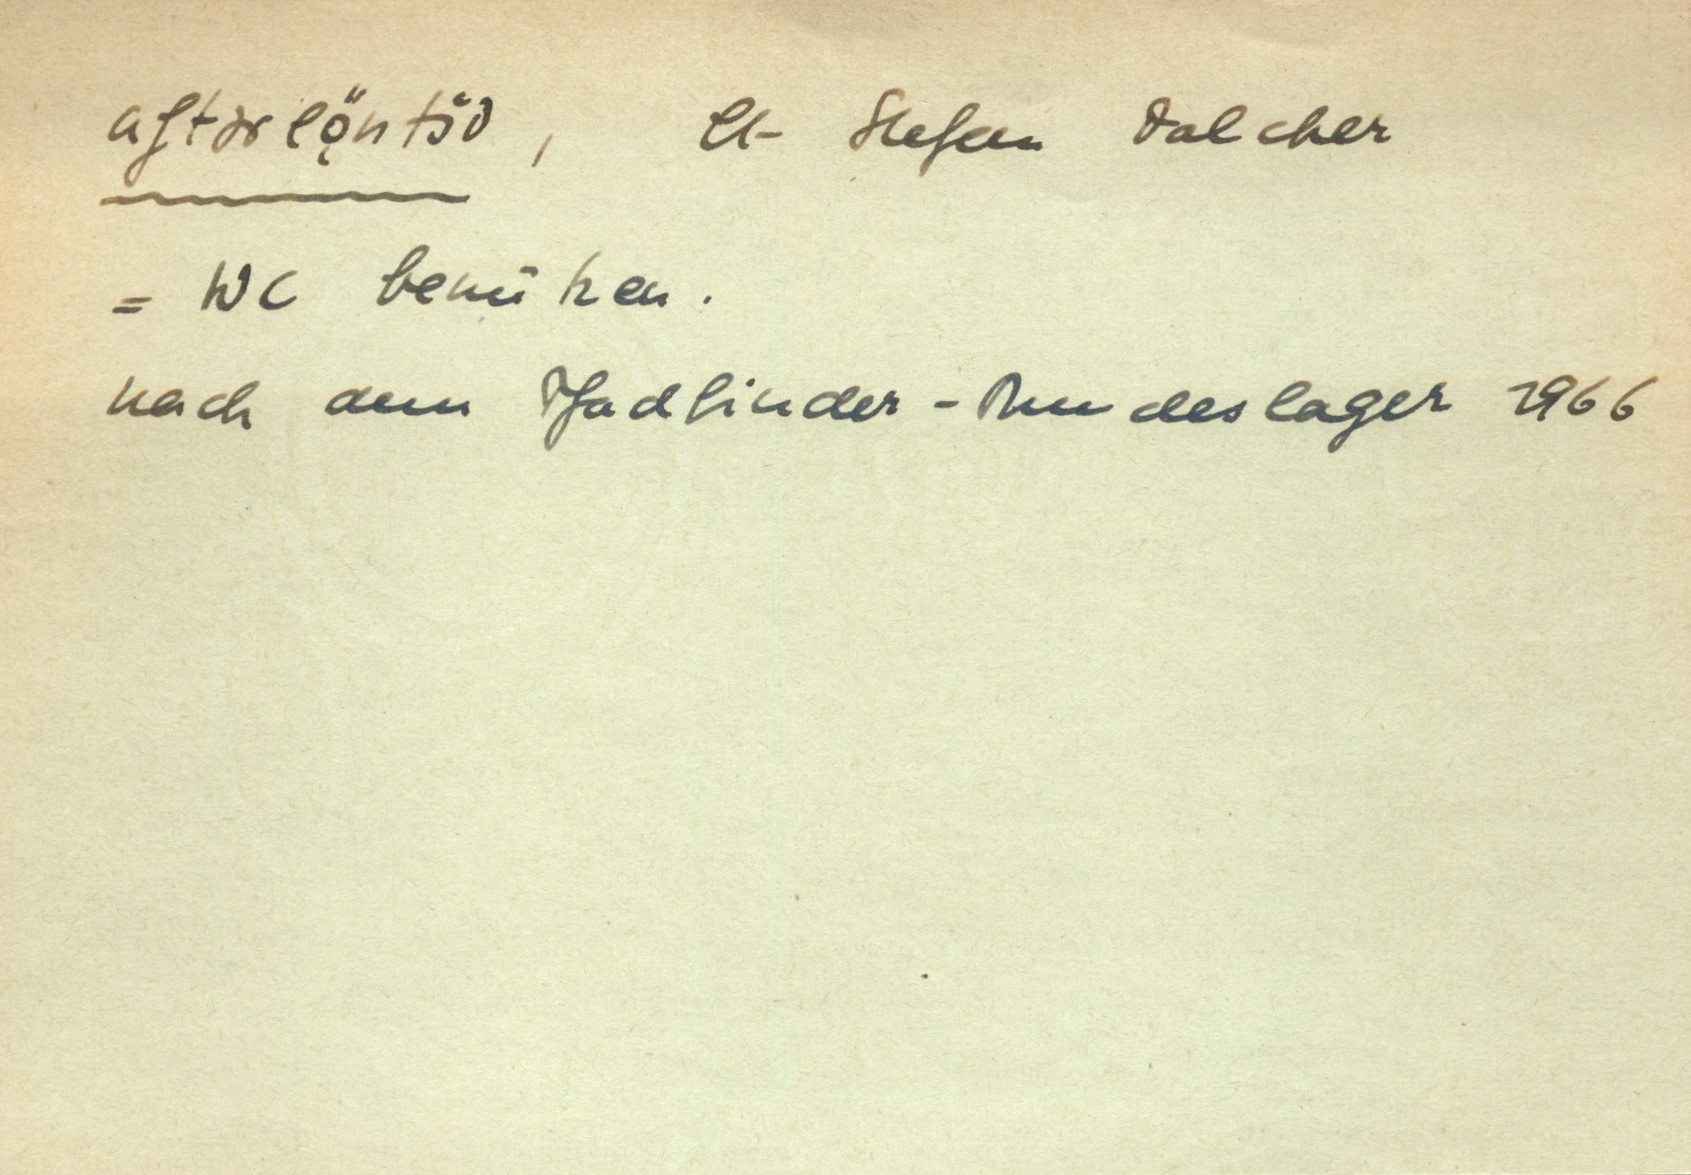 aftərlö̜ntšə, Cl- Stefan Dalcher
= WC benützen.
nach dem Pfadfinder-Bundeslager 1966